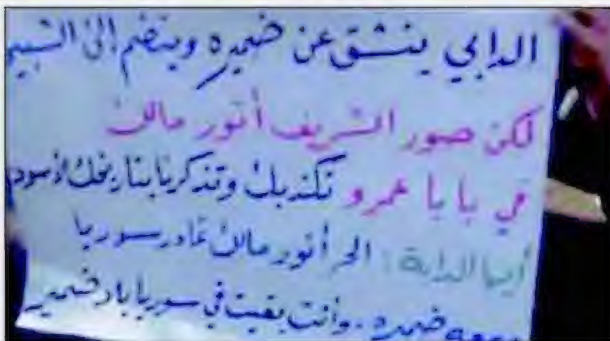 الدابي ينشق عن ضميره وينضم إلى الشبيح
لكن صور الشريف أنور مالك
في بابا عمرو تكذبك وتذكرنا بتاريخك الأسود
أيها الدابة: الحر أنور مالك غادر سوريا
ومعه ضميره. وأنت بقيت في سوريا بلا ضمير